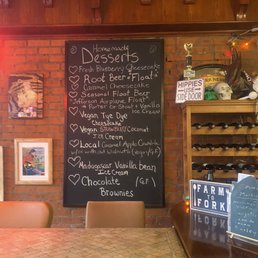 Homemade
Desserts
Fresh Blueberry Cheesecake
Root Beer "Float"
Caramel Cheesecake
Seasonal Float Beer
Jefferson Airplane Float
Porter or Stout + Vanilla
Ice Cream
Vegan Tye Dye
Cheesecake
Vegan Coconut
Ice Cream
Local Caramel Apple Crumble
with or without walnuts (vegan/G.F.)
Madagascar Vanilla bean
Ice Cream
Chocolate (G.F.)
Brownies
HIPPIES
SIDE DOOR
FARM
to
FORK